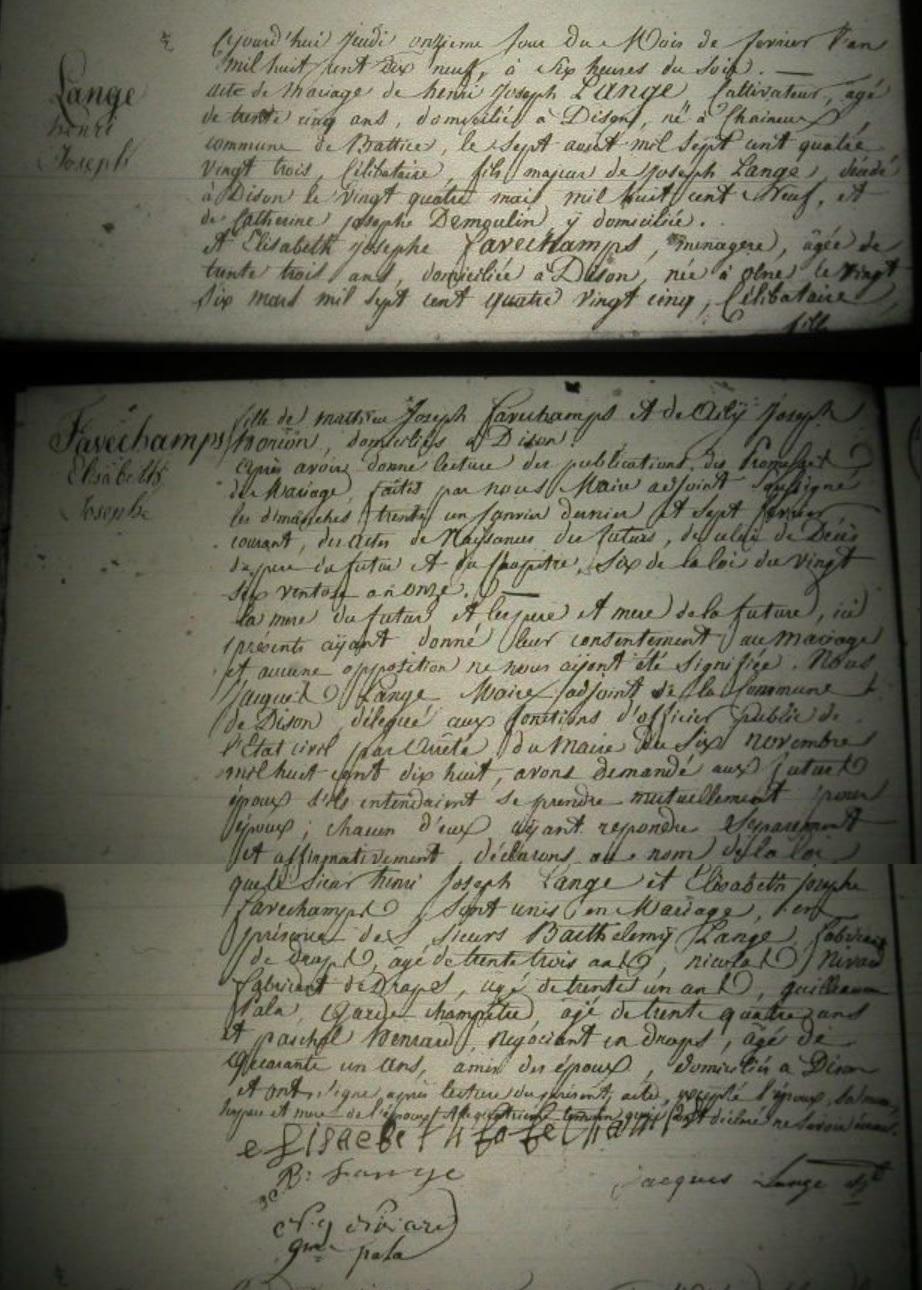 Lange
henri
Joseph
Cejourd'hui jeudi onzieme jour du Mois de fevrier l'an
mil huit cent dix neuf, à six heures du soir.
acte de Mariage de henri Joseph LANGE Cultivateur, agé
de trente cinq ans, domicilié à Dison, né à Chaineux
commune de Battice, le sept aout mil sept cent quatre
vingt trois, Célibataire, fils majeur de Joseph Lange, décédé
à Dison le vingt quatre mars mil huit cent Neuf, et
de Catherine josephe Demoulin y domiciliée.
Et Elisabeth josephe favechamps, menagere, agée de
trente trois ans, domiciliée à Dison, née à olne le vingt
six mars mil sept cent quatre vingt cinq, Célibataire
fille
Favechamps
Elisabeth
Josephe
fille de mathieu Joseph favechamps et de Joseph
domiciliés à Dison.
après avoir donné lecture des publications des Promesses
de Mariage, faites par nous Maire adjoint soussigné
les dimanches trente un Janvier dernier et sept fevrier
courant, des actes de Naissances des futurs, de celui de Décès
du pere du futur et du chapitre, six de la loi du vingt
six ventose an onze.
la mere du futur et les pere et mere de la future, ici
présents ayant donné leur consentement au mariage
et aucune opposition ne nous ayant été signifiée. Nous
Jacques Lange Maire adjoint de la Commune
de Dison, délégué aux fonctions d'officier public de
l'Etat civil par arrêté du Maire du six novembre
mil huit cent dix huit, avons demandé aux futurs
époux s'ils entendaient se prendre mutuellement pour
époux; chacun d'eux ayant repondu séparement
et affirmativement, déclarons au nom de la loi
que le sieur henri Joseph Lange et Elisabeth josephe
favechamps, sont unis en Mariage, en
présence des sieurs Barthelemy Lange, fabricant
de draps, agé de trente trois ans, nicolas Nivard
fabricant de Draps, agé de trente un ans, guillaume
Pala, Garde champêtre, agé de trente quatre ans
et paschal henrard, négociant en draps, agé de
quarante un ans, amis des époux, domiciliés à Dison
et ont signé, après lecture du présent acte, excepté l'époux, sa mere,
les pere et mere de l'épouse et quatrieme temoin qui ont déclaré ne savoir écrire.
B: Lange
Jacques Lange
Nivard
gme pala